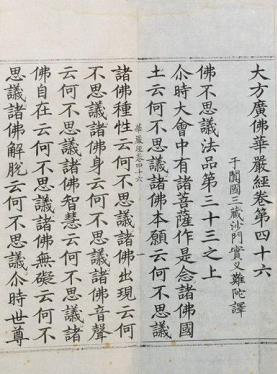 大方廣佛華嚴經卷第四十六
于闐國三藏沙門實叉難陀譯
佛不思議法品第三十三之上
尒時大會中有諸菩薩作是念諸佛國
土云何不思議諸佛本願云何不思議
華嚴經卷四十六 一
諸佛種性云何不思議諸佛出現云何
不思議諸佛身云何不思議諸佛音聲
云何不思議諸佛智慧云何不思議諸
佛自在云何不思議諸佛無礙云何不
思議諸佛解脫云何不思議尒時世尊